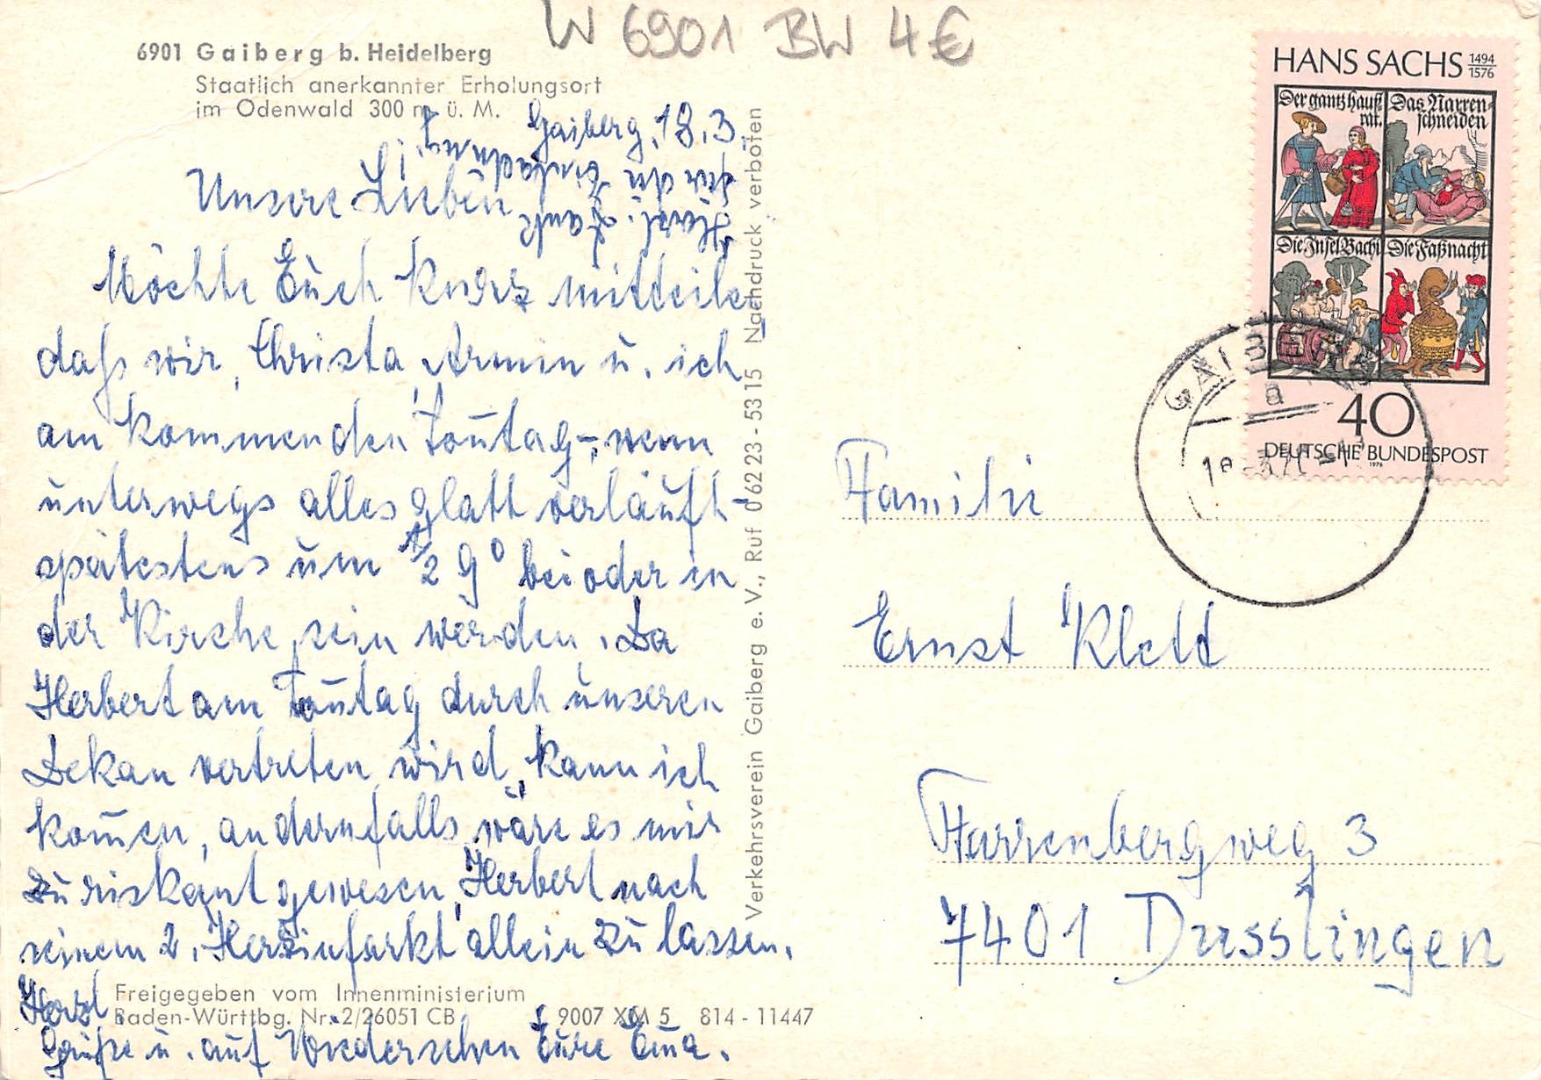 W 6901 BW 4€
6901 Gaiberg b. Heidelberg
Staatlich anerkannter Erholungsort
im Odenwald 300 m ü. M.
Gaiberg, 18.3.
Herzl. Dank
für die Einladung!
Unsere Lieben
Möchte Euch kurz mitteilen
daß wir, Christa, Armin u. ich
am kommenden Sonntag, – wenn
unterwegs alles glatt verläuft –
spätestens um 1/2 9° bei oder in
der Kirche sein werden. Da
Herbert am Sonntag durch unseren
Dekan vertreten wird, kann ich
kom̄en, andernfalls wäre es mir
zu riskant gewesen, Herbert nach
seinem 2. Herzinfarkt allein zu lassen.
Herzl.
Grüße u. auf Wiedersehen Eure Em̄a.
Freigegeben vom Innenministerium
Baden-Württbg. Nr. 2/26051 CB 9007 XM 5 814 - 11447
Verkehrsverein Gaiberg e. V., Ruf 0 62 23 - 53 15 Nachdruck verboten
HANS SACHS 1494 1576
Der gantz haußrat.
Das Narrenschneiden
Die Insel Bachi
Die Faßnacht
40
DEUTSCHE BUNDESPOST
1976
GAIBERG
a
Familie
Ernst Klett
Farrenbergweg 3
7401 Dusslingen